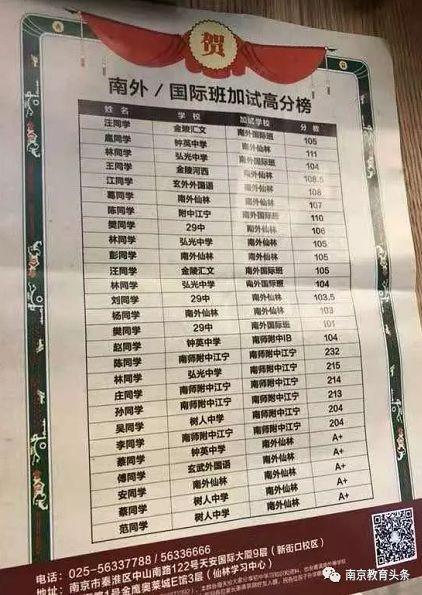 贺
南外/国际班加试高分榜
姓名 学校 加试学校 分数
汪同学 金陵汇文 南外国际班 105
同学 钟英中学 南外仙林 111
林同学 弘光中学 南外国际班 104
王同学 金陵河西 南外仙林 108.5
江同学 玄外外国语 南外国际班 108
葛同学 南外仙林 南外仙林 107
陈同学 附中江宁 南外国际班 110
樊同学 29中 南外仙林 106
林同学 弘光中学 南外仙林 105
彭同学 南外仙林 南外仙林 105
汪同学 金陵汇文 南外国际班 105
林同学 弘光中学 南外国际班 104
刘同学 29中 南外仙林 103.5
杨同学 南外仙林 南外仙林 103
樊同学 29中 南外国际班 101
赵同学 钟英中学 南师附中IB 104
陈同学 弘光中学 南师附中江宁 232
林同学 南师附中江宁 南师附中江宁 215
庄同学 南师附中江宁 南师附中江宁 214
孙同学 南师附中江宁 南师附中江宁 213
吴同学 树人中学 南师附中江宁 204
李同学 南师附中江宁 南师附中江宁 204
蔡同学 钟英中学 南外仙林 A+
傅同学 玄武外国语 南外仙林 A+
安同学 南外仙林 南外仙林 A+
蔡同学 树人中学 南外仙林 A+
范同学 树人中学 南外仙林 A+
电话：025-56337788 / 56336666
地址：南京市秦淮区中山南路122号天安国际大厦9层（新街口校区）
1号金鹰奥莱城E馆3层（仙林学习中心）
南京教育头条